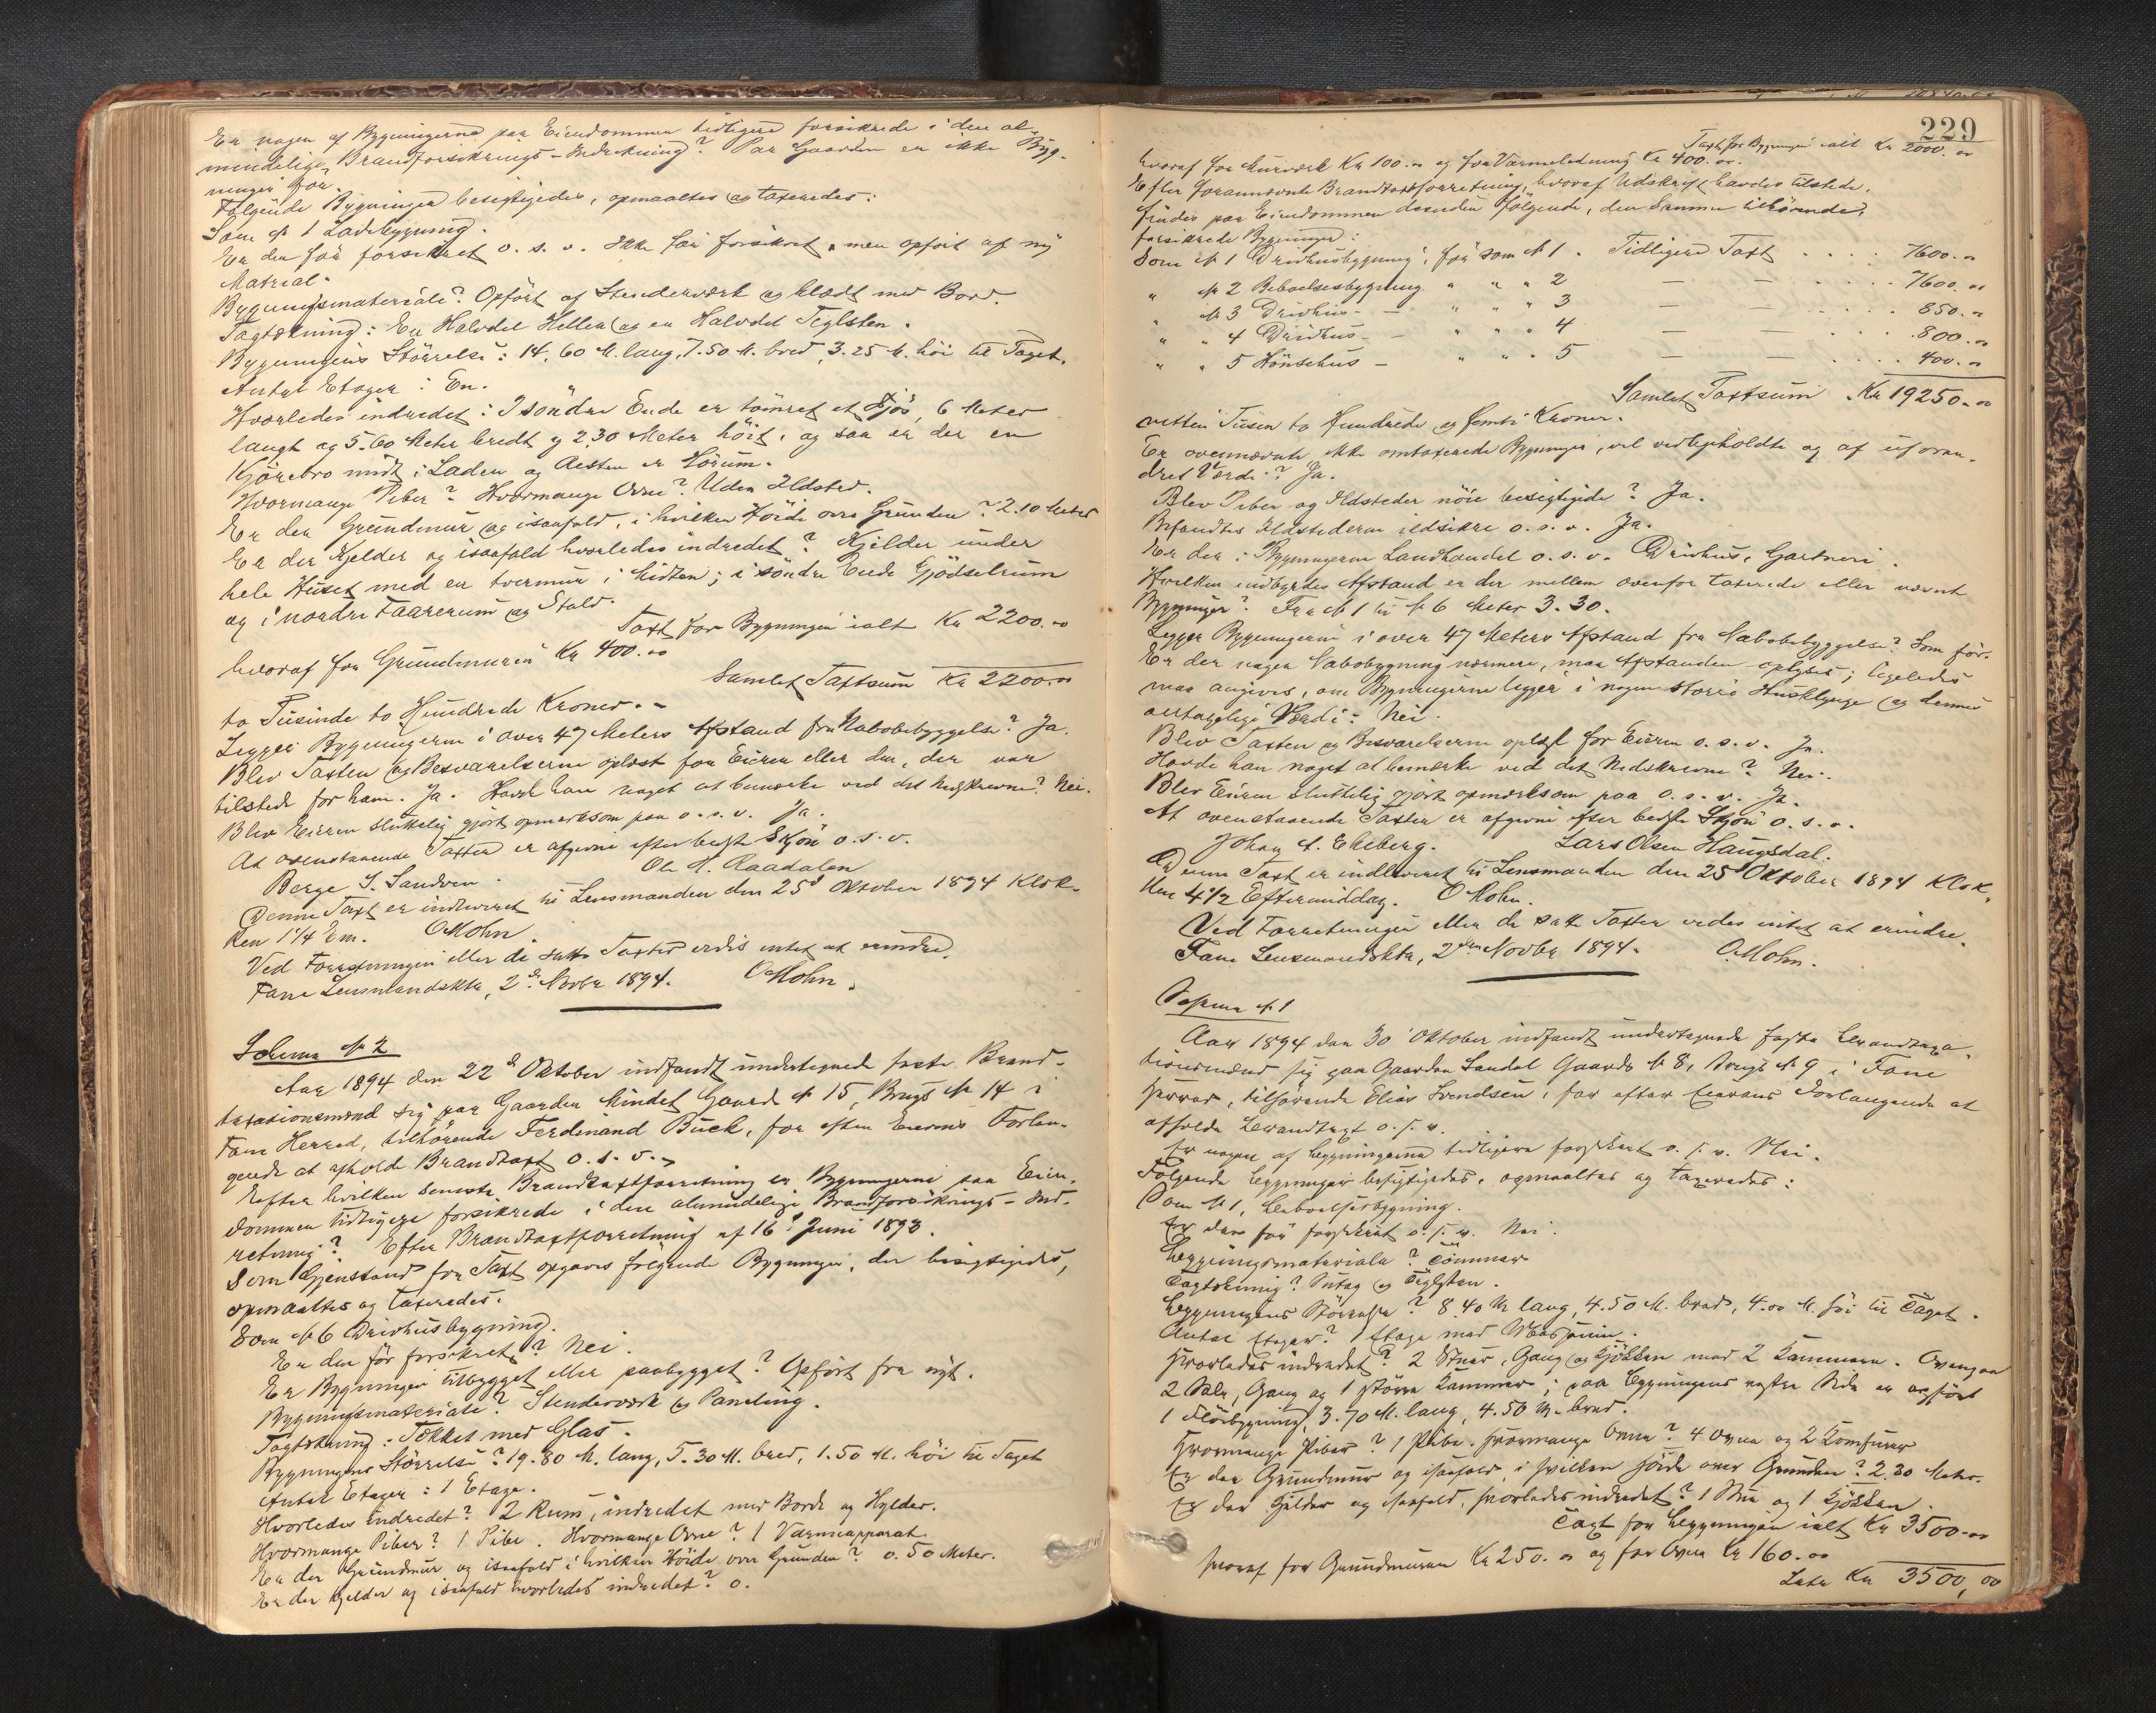 Er nogen af Bygningerne paa Eiendommen tidligere forsikrede i den al-
mindelige Brandforsikrings-Indretning? Paa Gaarden er ikke Byg-
ninger før.
Følgende Bygninger besigtigedes, opmaaltes og taxeredes:
Som № 1 Ladebygning.
Er den før forsikret o. s. v. Ikke før forsikret, men opført af ny
Matrial.
Bygningsmateriale? Opført af Stenderværk og klædt med Bord.
Tagtækning: En Halvdel Heller og en Halvdel Teglsten.
Bygningens Størrelse: 14.60 M. lang, 7.50 M. bred, 3.25 M. høi til Taget.
Antal Etager: En.
Hvorledes indredet: I søndre Ende er tømret et Fjøs, 6 Meter
langt og 5.60 Meter bredt og 2.30 Meter høit, og saa er der en
Kjørebro midt i Laden og Resten er Hørum.
Hvormange Piber? Hvormange Ovne? Uden Ildsted.
Er der Grundmur og isaafald, i hvilken Høide over Grunden? 2.10 Meter
Er der Kjelder og isaafald hvorledes indredet? Kjelder under
hele Huset med en tvermur i Midten; i søndre Ende Gjødselrum
og i nordre Faarerum og Stald.
Taxt for Bygningen ialt Kr 2200.00
hvoraf for Grundmuren Kr 400.00
Samlet Taxtsum Kr 2200.00
to Tusinde to Hundrede Kroner.-
Ligger Bygningerne i over 47 Meters Afstand fra Nabobebyggelse? Ja.
Blev Taxten og Besvarelserne oplæst for Eieren eller den, der var
tilstede for ham. Ja. Havde han noget at bemærke ved det Nedskrevne? Nei.
Blev Eieren sluttelig gjort opmærksom paa o. s. v. Ja.
At ovenstaaende Taxter er afgivne efter bedste Skjøn o. s. v.
Berge J. Sandven. Ole M. Raadalen
Denne Taxt er indleveret til Lensmanden den 25de Oktober 1894 Klok-
ken 1 1/4 Em. O Mohn.
Ved Forretningen eller de satte Taxter vides intet at erindre.
Fane Lensmandsktr, 2de Novbr 1894. O Mohn.
Schema № 2
Aar 1894 den 22de Oktober indfandt undertegnede faste Brand-
taxationsmænd sig paa Gaarden Mindet Gaard № 15, Brugs № 14 i
Fane Herred, tilhørende Ferdinand Buck, for efter Eierens Forlan-
gende at afholde Brandtaxt o. s. v.
Efter hvilken seneste Brandtaxtforretning er Bygningerne paa Eien-
dommen tidligere forsikrede i den almindelige Brandforsikrings-Ind-
retning? Efter Brandtaxtforretning af 16de Juni 1893.
Som Gjenstand for Taxt opgaves følgende Bygninger, der besigtigedes,
opmaaltes og taxeredes.
Som № 6 Drivhusbygning.
Er den før forsikret? Nei.
Er Bygningen tilbygget eller paabygget? Opført fra nyt.
Bygningsmateriale? Stenderværk og Paneling.
Tagtækning: Tækket med Glas.
Bygningens Størrelse? 19.80 M. lang, 5.30 M. bred, 1.50 M. høi til Taget
Antal Etager: 1 Etage.
Hvorledes indredet? 2 Rum, indredet med Borde og Hylder.
Hvormange Piber? 1 Pibe. Hvormange Ovne? 1 Varmeapparat.
Er der Grundmur og isaafald i hvilken Høide over Grunden? 0.50 Meter.
Er der Kjelder og isaafald hvorledes indredet? 0.
229
Taxt for Bygningen ialt Kr 2000.00
hvoraf for Murværk Kr 100.00 og for Varmeledning Kr 400.00.
Efter forannævnte Brandtaxtforretning, hvoraf Udskrift havdes tilstede,
findes paa Eiendommen desuden følgende, den Samme tilhørende,
forsikrede Bygninger:
Som № 1 Drivhusbygning, før som № 1. Tidligere Taxt . . . . 7600.00
" № 2 Beboelsesbygning " " " 2 — — . . . . 7600.00
" № 3 Drivhus - — " " " 3 — — . . . . 850.00
" " 4 Drivhus - - " " " 4 — — . . . . 800.00
" " 5 Hønsehus — " " " 5 — — . . . . 400.00
Samlet Taxtsum Kr 19250.00
nitten Tusen to Hundrede og femti Kroner.
Er ovennævnte ikke omtaxerede Bygninger, vel vedligeholdte og af uforan-
dret Værdi? Ja.
Blev Piber og Ildsteder nøie besigtigede? Ja.
Befandtes Ildstederne ildsikre o. s. v. Ja.
Er der i Bygningerne Landhandel o. s. v. Drivhus, Gartneri.
Hvilken indbyrdes Afstand er der mellem ovenfor taxerede eller nævnte
Bygninger? Fra № 1 til № 6 Meter 3.30.
Ligger Bygningerne i over 47 Meters Afstand fra Nabobebyggelse? Som før.
Er der nogen Nabobygning nærmere, maa Afstanden oplyses; ligeledes
maa angives, om Bygningerne ligger i nogen større Husklynge og dennes
antagelige Værdi: Nei.
Blev Taxten og Besvarelserne oplæst for Eieren o. s. v. Ja.
Havde han noget at bemærke ved det Nedskrevne? Nei.
Blev Eieren sluttelig gjort opmærksom paa o. s. v. Ja.
At ovenstaaende Taxter er afgivne efter bedste Skjøn o. s. v.
Johan A. Ekeberg. Lars Olsen Haugsdal.
Denne Taxt er indleveret til Lensmanden den 25 Oktober 1894 Klok-
ken 4 1/2 Eftermiddag. O Mohn.
Ved Forretningen eller de satte Taxter vides intet at erindre.
Fane Lensmandsktr, 2den Novbr 1894. O. Mohn.
Schema № 1
Aar 1894 den 30 Oktober indfandt undertegnede faste Brandtaxa-
tionsmænd sig paa Gaarden Sandal Gaards № 8, Brugs № 9 i Fane
Herred, tilhørende Elias Svendsen, for efter Eierens Forlangende at
afholde Brandtaxt o. s. v.
Er nogen af Bygningerne tidligere forsikret o. s. v. Nei.
Følgende Bygninger besigtigedes, opmaaltes og taxeredes:
Som № 1, Beboelsesbygning.
Er den før forsikret o. s. v. Nei.
Bygningsmateriale? Tømmer
Tagtækning? Sutag og Teglsten.
Bygningens Størrelse? 8.40 M lang, 4.50 M. bred, 4.00 M. høi til Taget.
Antal Etager? 1 Etage med Mesanin.
Hvorledes indredet? 2 Stuer, Gang og Kjøkken med 2 Kammere. Ovenpaa
2 Sale, Gang og 1 større Kammer; paa Bygningens vestre Side er opført
1 Fløibygning, 3.70 M. lang, 4.50 M. bred.
Hvormange Piber? 1 Pibe. Hvormange Ovne? 4 Ovne og 2 Komfurer
Er der Grundmur og isaafald, i hvilken Høide over Grunden? 2.30 Meter.
Er der Kjelder og isaafald, hvorledes indredet? 1 Stue og 1 Kjøkken.
Taxt for Bygningen ialt Kr 3500.00
hvoraf for Grundmuren Kr 250.00 og for Ovne Kr 160.00
Lata Kr 3500,00